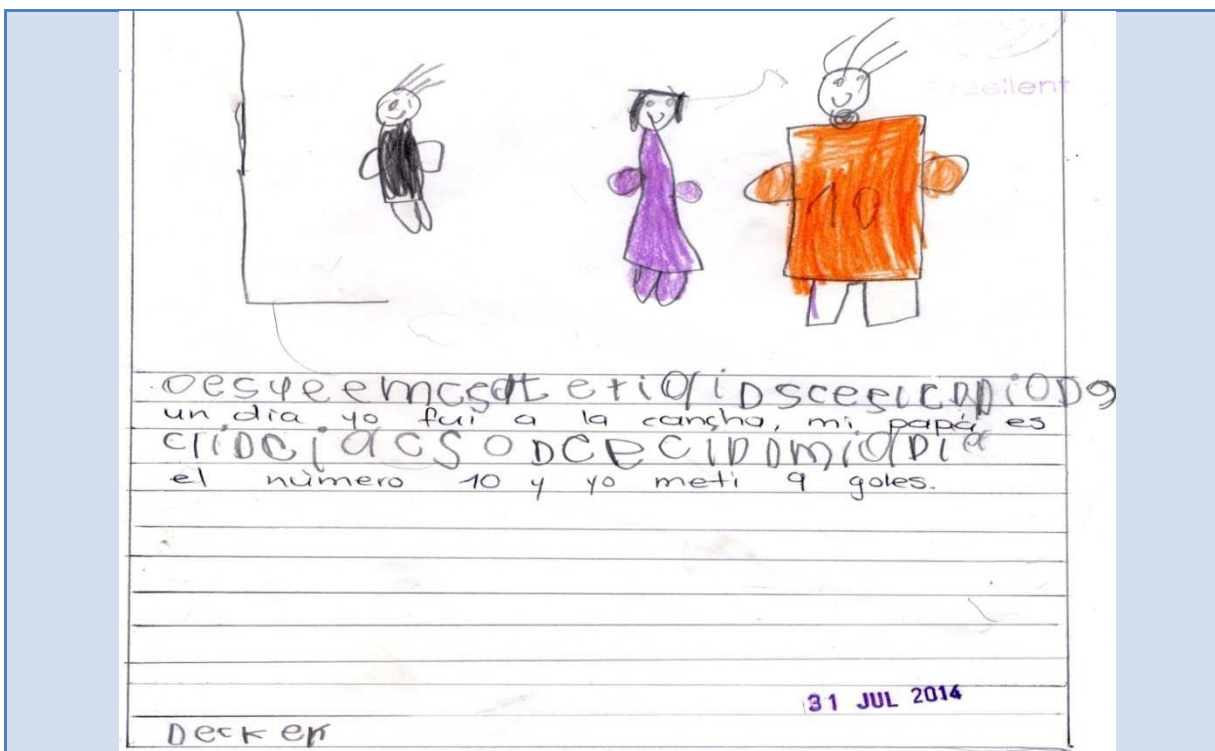 Excellent
10
oesyeemcsat etioliDscesicDpioDg
un dia yo fui a la cancha, mi papá es
criDciacsoDCECIDDmiaDia
el número 10 y yo meti 9 goles.
31 JUL 2014
Decker